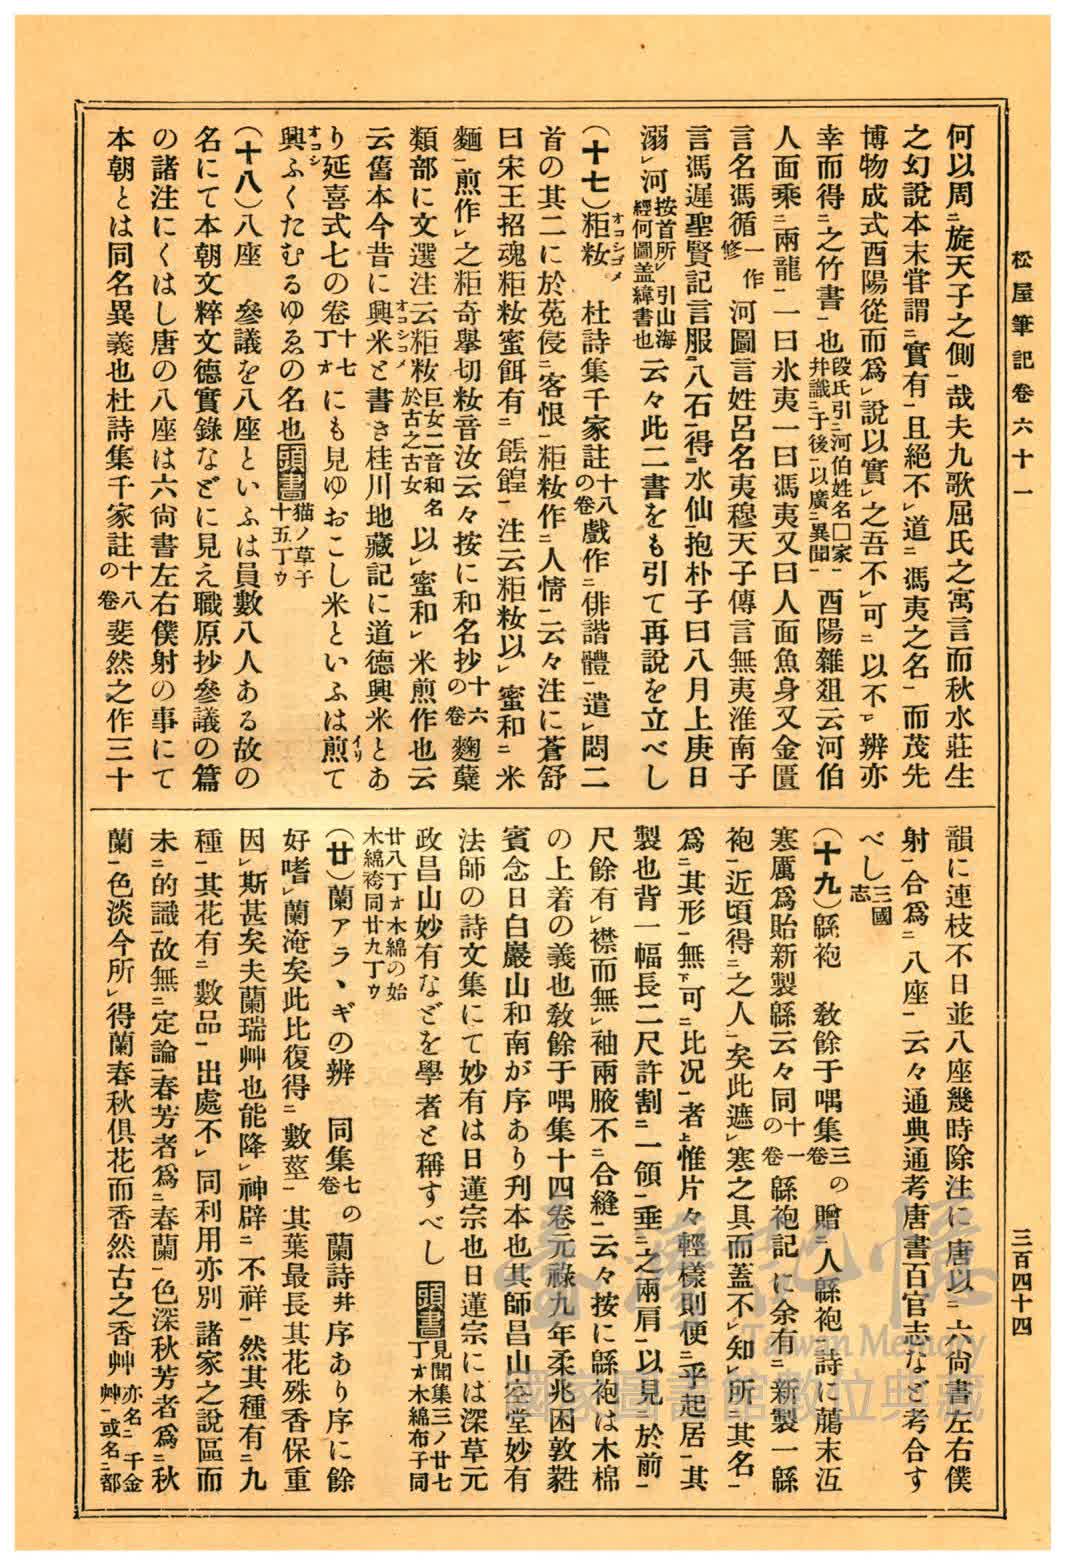 松屋筆記卷六十一
三百四十四
何以周ニ旋天子之側一哉夫九歌屈氏之寓言而秋水莊生
之幻說本末嘗謂ニ實有一且絕不レ道ニ馮夷之名一而茂先
博物成式酉陽從而爲レ說以實レ之吾不レ可ニ以不一レ辨亦
幸而得ニ之竹書一也段氏引ニ河伯姓名□家一幷識ニ于後一以廣ニ異聞一酉陽雜俎云河伯
人面乘ニ兩龍一一曰氷夷一曰馮夷又曰人面魚身又金匱
言名馮循一作修河圖言姓呂名夷穆天子傳言無夷淮南子
言馮遲聖賢記言服ニ八石一得ニ水仙一抱朴子曰八月上庚日
溺レ河按首所レ引山海經何圖盖緯書也云々此二書をも引て再說を立べし
(十七)粔籹オコシゴメ 杜詩集千家註十八の卷戲作ニ俳諧體一遣レ悶二
首の其二に於菟侵ニ客恨一粔籹作ニ人情一云々注に蒼舒
曰宋王招魂粔籹蜜餌有ニ餦餭一注云粔籹以レ蜜和ニ米
麵一煎作レ之粔奇擧切籹音汝云々按に和名抄十六の卷麴蘖
類部に文選注云粔籹オコシコメ巨女二音和名於古之古女以レ蜜和レ米煎作也云
云舊本今昔に興米と書き桂川地藏記に道德興米とあ
り延喜式七の卷十七丁オにも見ゆおこし米といふは煎イリて
興オコシふくたむるゆゑの名也頭書猫ノ草子十五丁ウ
(十八)八座 參議を八座といふは員數八人ある故の
名にて本朝文粹文德實錄などに見え職原抄參議の篇
の諸注にくはし唐の八座は六尙書左右僕射の事にて
本朝とは同名異義也杜詩集千家註十八の卷斐然之作三十
韻に連枝不日並八座幾時除注に唐以ニ六尙書左右僕
射一合爲ニ八座一云々通典通考唐書百官志など考合す
べし三國志
(十九)緜袍 敎餘于喁集三卷の贈ニ人緜袍一詩に鶶末沍
寒厲爲貽新製緜云々同十一の卷緜袍記に余有ニ新製一緜
袍一近頃得ニ之人一矣此遮レ寒之具而蓋不レ知レ所レ其名一
爲ニ其形一無下可ニ比况一者上惟片々輕樣則便ニ乎起居一其
製也背一幅長二尺許割ニ一領一垂ニ之兩肩一以見レ於前一
尺餘有レ襟而無レ袖兩腋不ニ合縫一云々按に緜袍は木棉
の上着の義也敎餘于喁集十四卷元祿九年柔兆困敦蕤
賓念日白巖山和南が序あり刊本也其師昌山空堂妙有
法師の詩文集にて妙有は日蓮宗也日蓮宗には深草元
政昌山妙有などを學者と稱すべし頭書見聞集三ノ廿七丁オ木綿布子同
廿八丁オ木綿の始木綿袴同廿九丁ウ
(廿)蘭アラヽギの辨 同集七卷の蘭詩幷序あり序に餘
好嗜レ蘭淹矣此比復得ニ數莖一其葉最長其花殊香保重
因レ斯甚矣夫蘭瑞艸也能降レ神辟ニ不祥一然其種有ニ九
種一其花有ニ數品一出處不レ同利用亦別諸家之說區而
未ニ的識一故無ニ定論一春芳者爲ニ春蘭一色深秋芳者爲ニ秋
蘭一色淡今所レ得蘭春秋俱花而香然古之香艸亦名ニ千金艸一或名ニ都
臺灣記憶
Taiwan Memory
國家圖書館數位典藏